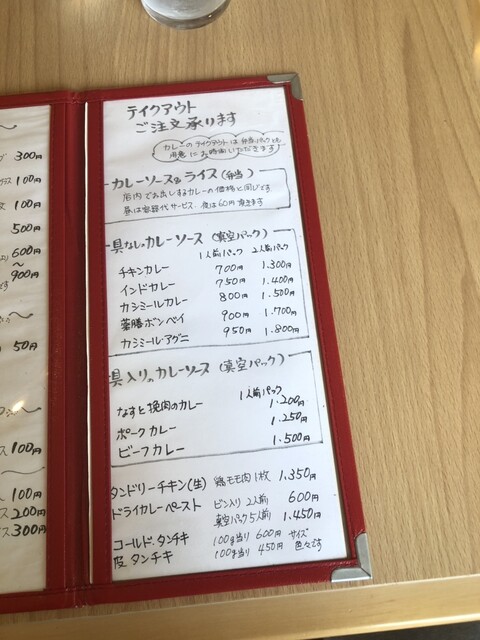 300円
100円
100円
500円
600円
〜
900円
50円
100円
100円
200円
300円
テイクアウト
ご注文承ります
カレーのテイクアウトは弁当パックも
用意にお時間いただきます
カレーソース&ライス(弁当)
店内でお出しするカレーの価格と同じです
昼は容器代サービス 夜は60円頂きます
具なしのカレーソース(真空パック)
1人前パック 2人前パック
チキンカレー 700円 1.300円
インドカレー 750円 1.400円
カシミールカレー 800円 1.500円
薬膳ボンベイ 900円 1.700円
カシミール・アグニ 950円 1.800円
具入りのカレーソース(真空パック)
1人前パック
なすと挽肉のカレー 1.200円
ポークカレー 1.250円
ビーフカレー 1.500円
タンドリーチキン(生) 鶏モモ肉1枚 1.350円
ドライカレーペースト ビン入り2人前 600円
真空パック5人前 1.450円
コールド・タンチキ 100g当り 600円 サイズ
皮タンチキ 100g当り 450円 色々です